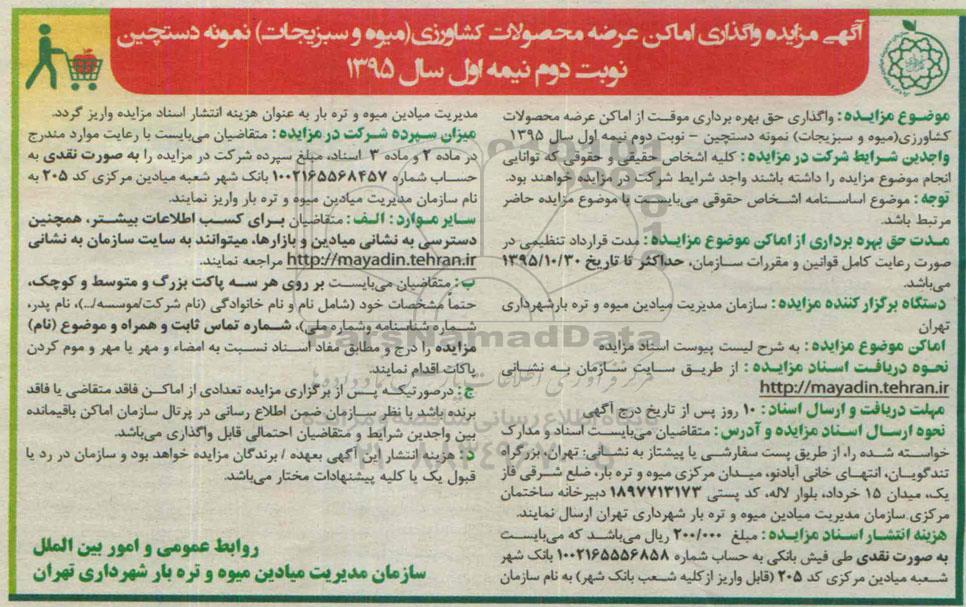 آگهی مزایده واگذاری اماکن عرضه محصولات کشاورزی(میوه و سبزیجات) نمونه دستچین
نوبت دوم نیمه اول سال ۱۳۹۵
موضوع مزایده : واگذاری حق بهره برداری موقت از اماکن عرضه محصولات
کشاورزی(میوه و سبزیجات) نمونه دستچین – نوبت دوم نیمه اول سال ۱۳۹۵
واجدین شرایط شرکت در مزایده : کلیه اشخاص حقیقی و حقوقی که توانایی
انجام موضوع مزایده را داشته باشند واجد شرایط شرکت در مزایده خواهند بود.
توجه : موضوع اساسنامه اشخاص حقوقی می‌بایست با موضوع مزایده حاضر
مرتبط باشد.
مدت حق بهره برداری از اماکن موضوع مزایده : مدت قرارداد تنظیمی در
صورت رعایت کامل قوانین و مقررات سازمان، حداکثر تا تاریخ ۱۳۹۵/۱۰/۳۰
می‌باشد.
دستگاه برگزار کننده مزایده : سازمان مدیریت میادین میوه و تره بارشهرداری
تهران
اماکن موضوع مزایده : به شرح لیست پیوست اسناد مزایده
نحوه دریافت اسناد مزایده : از طریق سایت سازمان به نشانی
http://mayadin.tehran.ir
مهلت دریافت و ارسال اسناد : ۱۰ روز پس از تاریخ درج آگهی
نحوه ارسال اسناد مزایده و آدرس : متقاضیان می‌بایست اسناد و مدارک
خواسته شده را، از طریق پست سفارشی یا پیشتاز به نشانی: تهران، بزرگراه
تندگویان، انتهای خانی آبادنو، میدان مرکزی میوه و تره بار، ضلع شرقی فاز
یک، میدان ۱۵ خرداد، بلوار لاله، کد پستی ۱۸۹۷۷۱۳۱۷۳ دبیرخانه ساختمان
مرکزی سازمان مدیریت میادین میوه و تره بار شهرداری تهران ارسال نمایند.
هزینه انتشار اسناد مزایده : مبلغ ۲۰۰/۰۰۰ ریال می‌باشد که می‌بایست
به صورت نقدی طی فیش بانکی به حساب شماره ۱۰۰۲۱۶۵۵۵۶۸۵۸ بانک شهر
شعبه میادین مرکزی کد ۲۰۵ (قابل واریز ازکلیه شعب بانک شهر) به نام سازمان
مدیریت میادین میوه و تره بار به عنوان هزینه انتشار اسناد مزایده واریز گردد.
میزان سپرده شرکت در مزایده : متقاضیان می‌بایست با رعایت موارد مندرج
در ماده ۲ و ماده ۳ اسناد، مبلغ سپرده شرکت در مزایده را به صورت نقدی به
حساب شماره ۱۰۰۲۱۶۵۵۶۸۴۵۷ بانک شهر شعبه میادین مرکزی کد ۲۰۵ به
نام سازمان مدیریت میادین میوه و تره بار واریز نمایند.
سایر موارد : الف : متقاضیان برای کسب اطلاعات بیشتر، همچنین
دسترسی به نشانی میادین و بازارها، میتوانند به سایت سازمان به نشانی
http://mayadin.tehran.ir مراجعه نمایند.
ب : متقاضیان می‌بایست بر روی هر سه پاکت بزرگ و متوسط و کوچک،
حتماً مشخصات خود (شامل نام و نام خانوادگی (نام شرکت/موسسه/...)، نام پدر،
شماره شناسنامه وشماره ملی)، شماره تماس ثابت و همراه و موضوع (نام)
مزایده را درج و مطابق مفاد اسناد نسبت به امضاء و مهر یا مهر و موم کردن
پاکات اقدام نمایند.
ج : درصورتیکه پس از برگزاری مزایده تعدادی از اماکن فاقد متقاضی یا فاقد
برنده باشد با نظر سازمان ضمن اطلاع رسانی در پرتال سازمان اماکن باقیمانده
بین واجدین شرایط و متقاضیان احتمالی قابل واگذاری می‌باشد.
د : هزینه انتشار این آگهی بعهده / برندگان مزایده خواهد بود و سازمان در رد یا
قبول یک یا کلیه پیشنهادات مختار می‌باشد.
روابط عمومی و امور بین الملل
سازمان مدیریت میادین میوه و تره بار شهرداری تهران
ParsNamadData